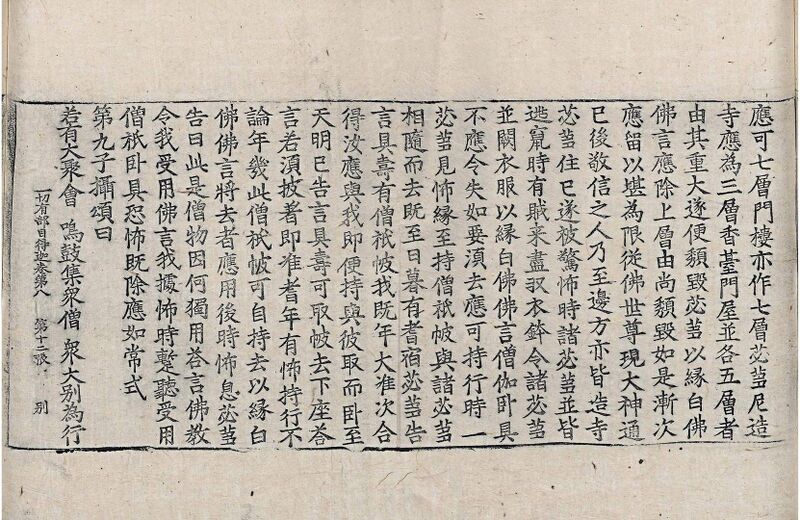 應可七層門樓亦作七層苾蒭尼造
寺應為三層香臺門屋並各五層者
由其重大遂便頹毀苾蒭以緣白佛
佛言應除上層由尚頹毀如是漸次
應留以堪為限從佛世尊現大神通
已後敬信之人乃至邊方亦皆造寺
苾蒭住已遂被驚怖時諸苾蒭並皆
逃竄時有賊来盡取衣鉢令諸苾蒭
並闕衣服以緣白佛佛言僧伽卧具
不應令失如要湏去應可持行時一
苾蒭見怖緣至持僧祇帔與諸苾蒭
相隨而去既至日暮有耆宿苾蒭告
言具壽有僧祇帔我既年大准次合
得汝應與我即便持與彼取而卧至
天明已告言具壽可取帔去下座荅
言若湏披著即准耆年有怖持行不
論年幾此僧祇帔可自持去以緣白
佛佛言將去者應用後時怖息苾蒭
告曰此是僧物因何獨用荅言佛教
令我受用佛言我據怖時蹔聽受用
僧祇卧具恐怖既除應如常式
第九子攝頌曰
若有大聚會 鳴鼓集衆僧 衆大別為行
一切有部目得迦卷第八 第十二張 别